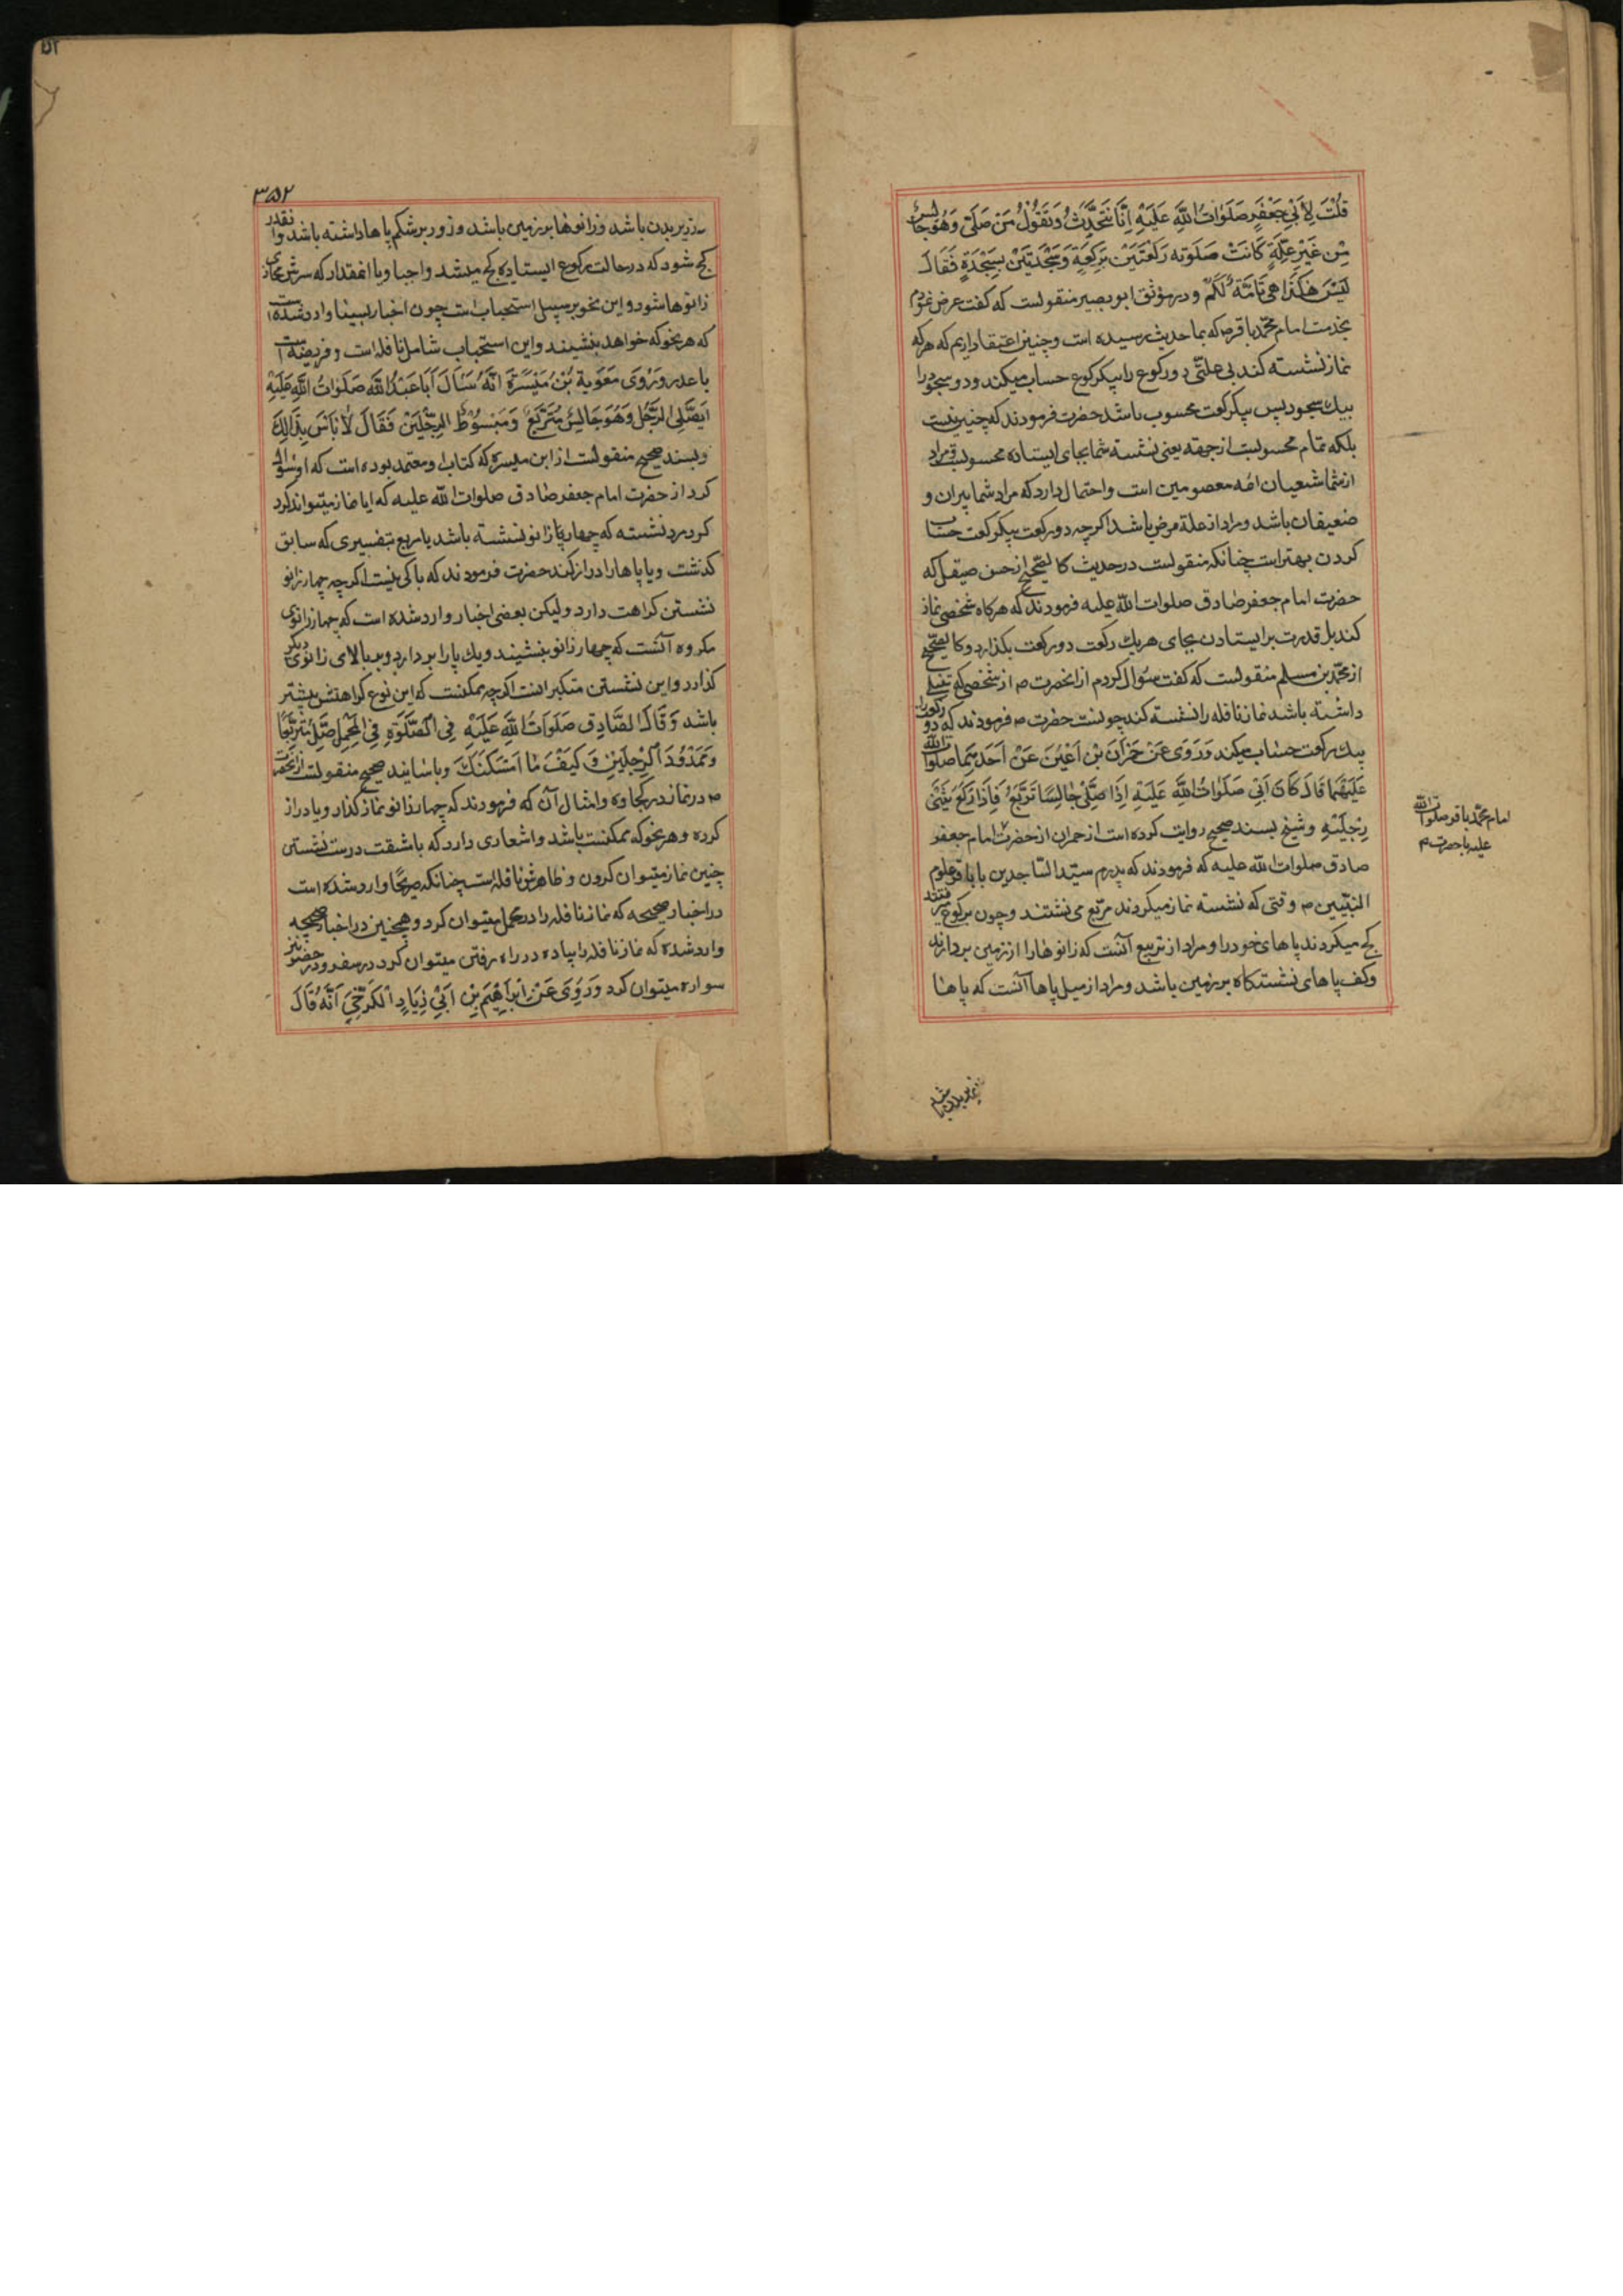 قُلْتُ لِأَبِي جَعْفَرٍ صَلَوَاتُ اللَّهِ عَلَيْهِ اِنَّا نَتَحَدَّثُ وَنَقُولُ مَنْ صَلّى وَهُوَ جَالِسٌ
مِنْ غَيْرِ عِلَّةٍ كَانَتْ صَلَوتُهُ رَكْعَتَيْنِ بِرَكْعَةٍ وَسَجْدَتَيْنِ بِسَجْدَةٍ فَقَالَ
لَيْسَ هكَذَا هِيَ تَامَّةٌ لَكُمْ و در موثق ابو بصیر منقولست که کفت عرض نمودم
بخدمت امام محمد باقر ص که بما حدیث رسیده است و چنین اعتقاد داریم که هر که
نماز نشسته کند بی علتی دو رکوع را بیکرکوع حساب میکند و دو سجود را
بیك سجود پس بیکرکعت محسوب باشد حضرت فرمودند که چنین نیست
بلکه تمام محسوبست از جهة یعنی نشسته شما بجای ایستاده محسوبست و مراد
از شما شیعیان ائمه معصومین است و احتمال دارد که مراد شما پیران و
ضعیفان باشد و مراد از علة مرض باشد اکرچه دو رکعت بیکرکعت حساب
کردن بهتر است چنانکه منقولست در حدیث کالصحیح از حسن صیقل که
حضرت امام جعفر صادق صلوات الله علیه فرمودند که هرکاه شخصی نماز
کند با قدرت بر ایستادن بجای هریك رکعت دو رکعت بکذارد و کالصحیح
از محمد بن مسلم منقولست که کفت سئوال کردم از انحضرت ص از شخصی که تنبلی
داشته باشد نماز نافله را نشسته کند چونست حضرت ص فرمودند که دو رکعت را
بیك رکعت حساب میکند وَرَوَى عَنْ حَمْرَانَ بْنِ اَعْيَنَ عَنْ اَحَدِهِمَا صلوات الله
عَلَيْهِمَا قَالَ كَانَ اَبِي صَلَوَاتُ اللَّهِ عَلَيْهِ اِذَا صَلَّى جَالِسًا تَرَبَّعَ فَاِذَا رَكَعَ يَثْنِي
رِجْلَيْهِ و شیخ بسند صحیح روایت کرده است از حمران از حضرت امام جعفر
صادق صلوات الله علیه که فرمودند که پدرم سید الساجدین یا باقر علوم
النبیین ص وقتی که نشسته نماز میکردند مربع می نشستند و چون برکوع میرفتند
کج میکردند پاهای خود را و مراد از تربیع آنست که زانوها را از زمین بردارند
و کف پاهای نشستکاه بر زمین باشد و مراد از میل پاها آنست که پاها
امام محمد باقر صلوات الله
علیه یا حضرت م
٣٥٢
زیر بدن باشد و زانوها بر زمین باشد و زور بر شکم پاها داشته باشد و انقدر
کج شود که در حالت رکوع ایستاده کج میشد واجبا و یا انمقدار که سرش محاذی
زانوها شود و این نحو بر سبیل استحباب است چون اخبار بسیار وارد شده است
که هر نحو که خواهد بنشیند و این استحباب شامل نافله است و فریضه است
با عذر وَرَوَى مَعٰوِيَةُ بْنُ مَيْسَرَةَ اَنَّهُ سَاَلَ اَبَا عَبْدِ اللَّهِ صَلَوَاتُ اللَّهِ عَلَيْهِ
اَيُصَلِّي الرَّجُلُ وَهُوَ جَالِسٌ مُتَرَبِّعٌ وَمَبْسُوطُ الرِّجْلَيْنِ فَقَالَ لَا بَأْسَ بِذٰلِكَ
و بسند صحیح منقولست از ابن میسره که کتاب او معتمد بوده است که او سؤال
کرد از حضرت امام جعفر صادق صلوات الله علیه که ایا نماز میتواند کرد
مرد نشسته که چهار زانو نشسته باشد یا مربع بتفسیری که سابق
کذشت و یا پاها را دراز کند حضرت فرمودند که باکی نیست اکرچه چهار زانو
نشستن کراهت دارد ولیکن بعضی اخبار وارد شده است که چهار زانوی
مکروه آنست که چهار زانو بنشیند و یك پا را بردارد و بر بالای زانوی دیکر
کذارد و این نشستن متکبرانست اکرچه ممکنست که این نوع کراهتش بیشتر
باشد وَقَالَ الصَّادِق صَلَوَاتُ اللَّهِ عَلَيْهِ فِي الصَّلَوةِ فِي الْمَحْمِلِ صَلِّ مُتَرَبِّعًا
وَمَمْدُودَ الرِّجْلَيْنِ وَكَيْفَ مَا اَمْكَنَكَ و باسانید صحیح منقولست از انحضرت
ص در نماز در کجاوه و امثال آن که فرمودند که چهار زانو نماز کذار و پا دراز
کرده و هر نحو که ممکنست باشد و اشعاری دارد که با مشقت درست نشستن
چنین نماز میتوان کردن و ظاهرش نافله است چنانکه صریحا وارد شده است
در اخبار صحیحه که نماز نافله را در محمل میتوان کرد و همچنین در اخبار صحیحه
وارد شده که نماز نافله را پیاده در راه رفتن میتوان کرد در سفر و در حضر نیز
سواره میتوان کرد وَرَوَى عَنْ اِبْرَاهِيمَ بْنِ اَبِي زِيَادٍ الْكَرْخِيِّ اَنَّهُ قَالَ